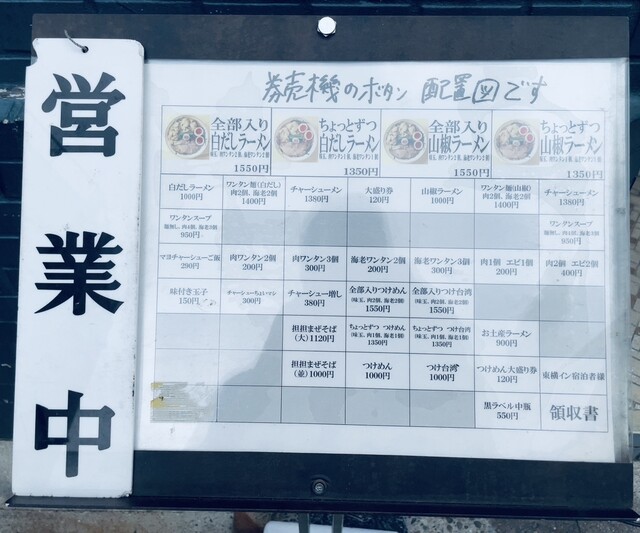 営業中
券売機のボタン 配置図です
全部入り
白だしラーメン
1550円
ちょっとずつ
白だしラーメン
1350円
全部入り
山椒ラーメン
1550円
ちょっとずつ
山椒ラーメン
1350円
白だしラーメン
1000円
ワンタン麺(白だし)
肉2個、海老2個
1400円
チャーシューメン
1380円
大盛り券
120円
山椒ラーメン
1000円
ワンタン麺(山椒)
肉2個、海老2個
1400円
チャーシューメン
1380円
ワンタンスープ
950円
ワンタンスープ
950円
マヨチャーシューご飯
290円
肉ワンタン2個
200円
肉ワンタン3個
300円
海老ワンタン2個
200円
海老ワンタン3個
300円
肉1個 エビ1個
200円
肉2個 エビ2個
400円
味付き玉子
150円
チャーシューちょいマシ
300円
チャーシュー増し
380円
全部入りつけめん
(味玉、肉2個、海老2個)
1550円
全部入りつけ台湾
(味玉、肉2個、海老2個)
1550円
担担まぜそば
(大)1120円
ちょっとずつ つけめん
(味玉、肉1個、海老1個)
1350円
ちょっとずつ つけ台湾
(味玉、肉1個、海老1個)
1350円
お土産ラーメン
900円
担担まぜそば
(並)1000円
つけめん
1000円
つけ台湾
1000円
つけめん大盛り券
120円
東横イン宿泊者様
黒ラベル中瓶
550円
領収書